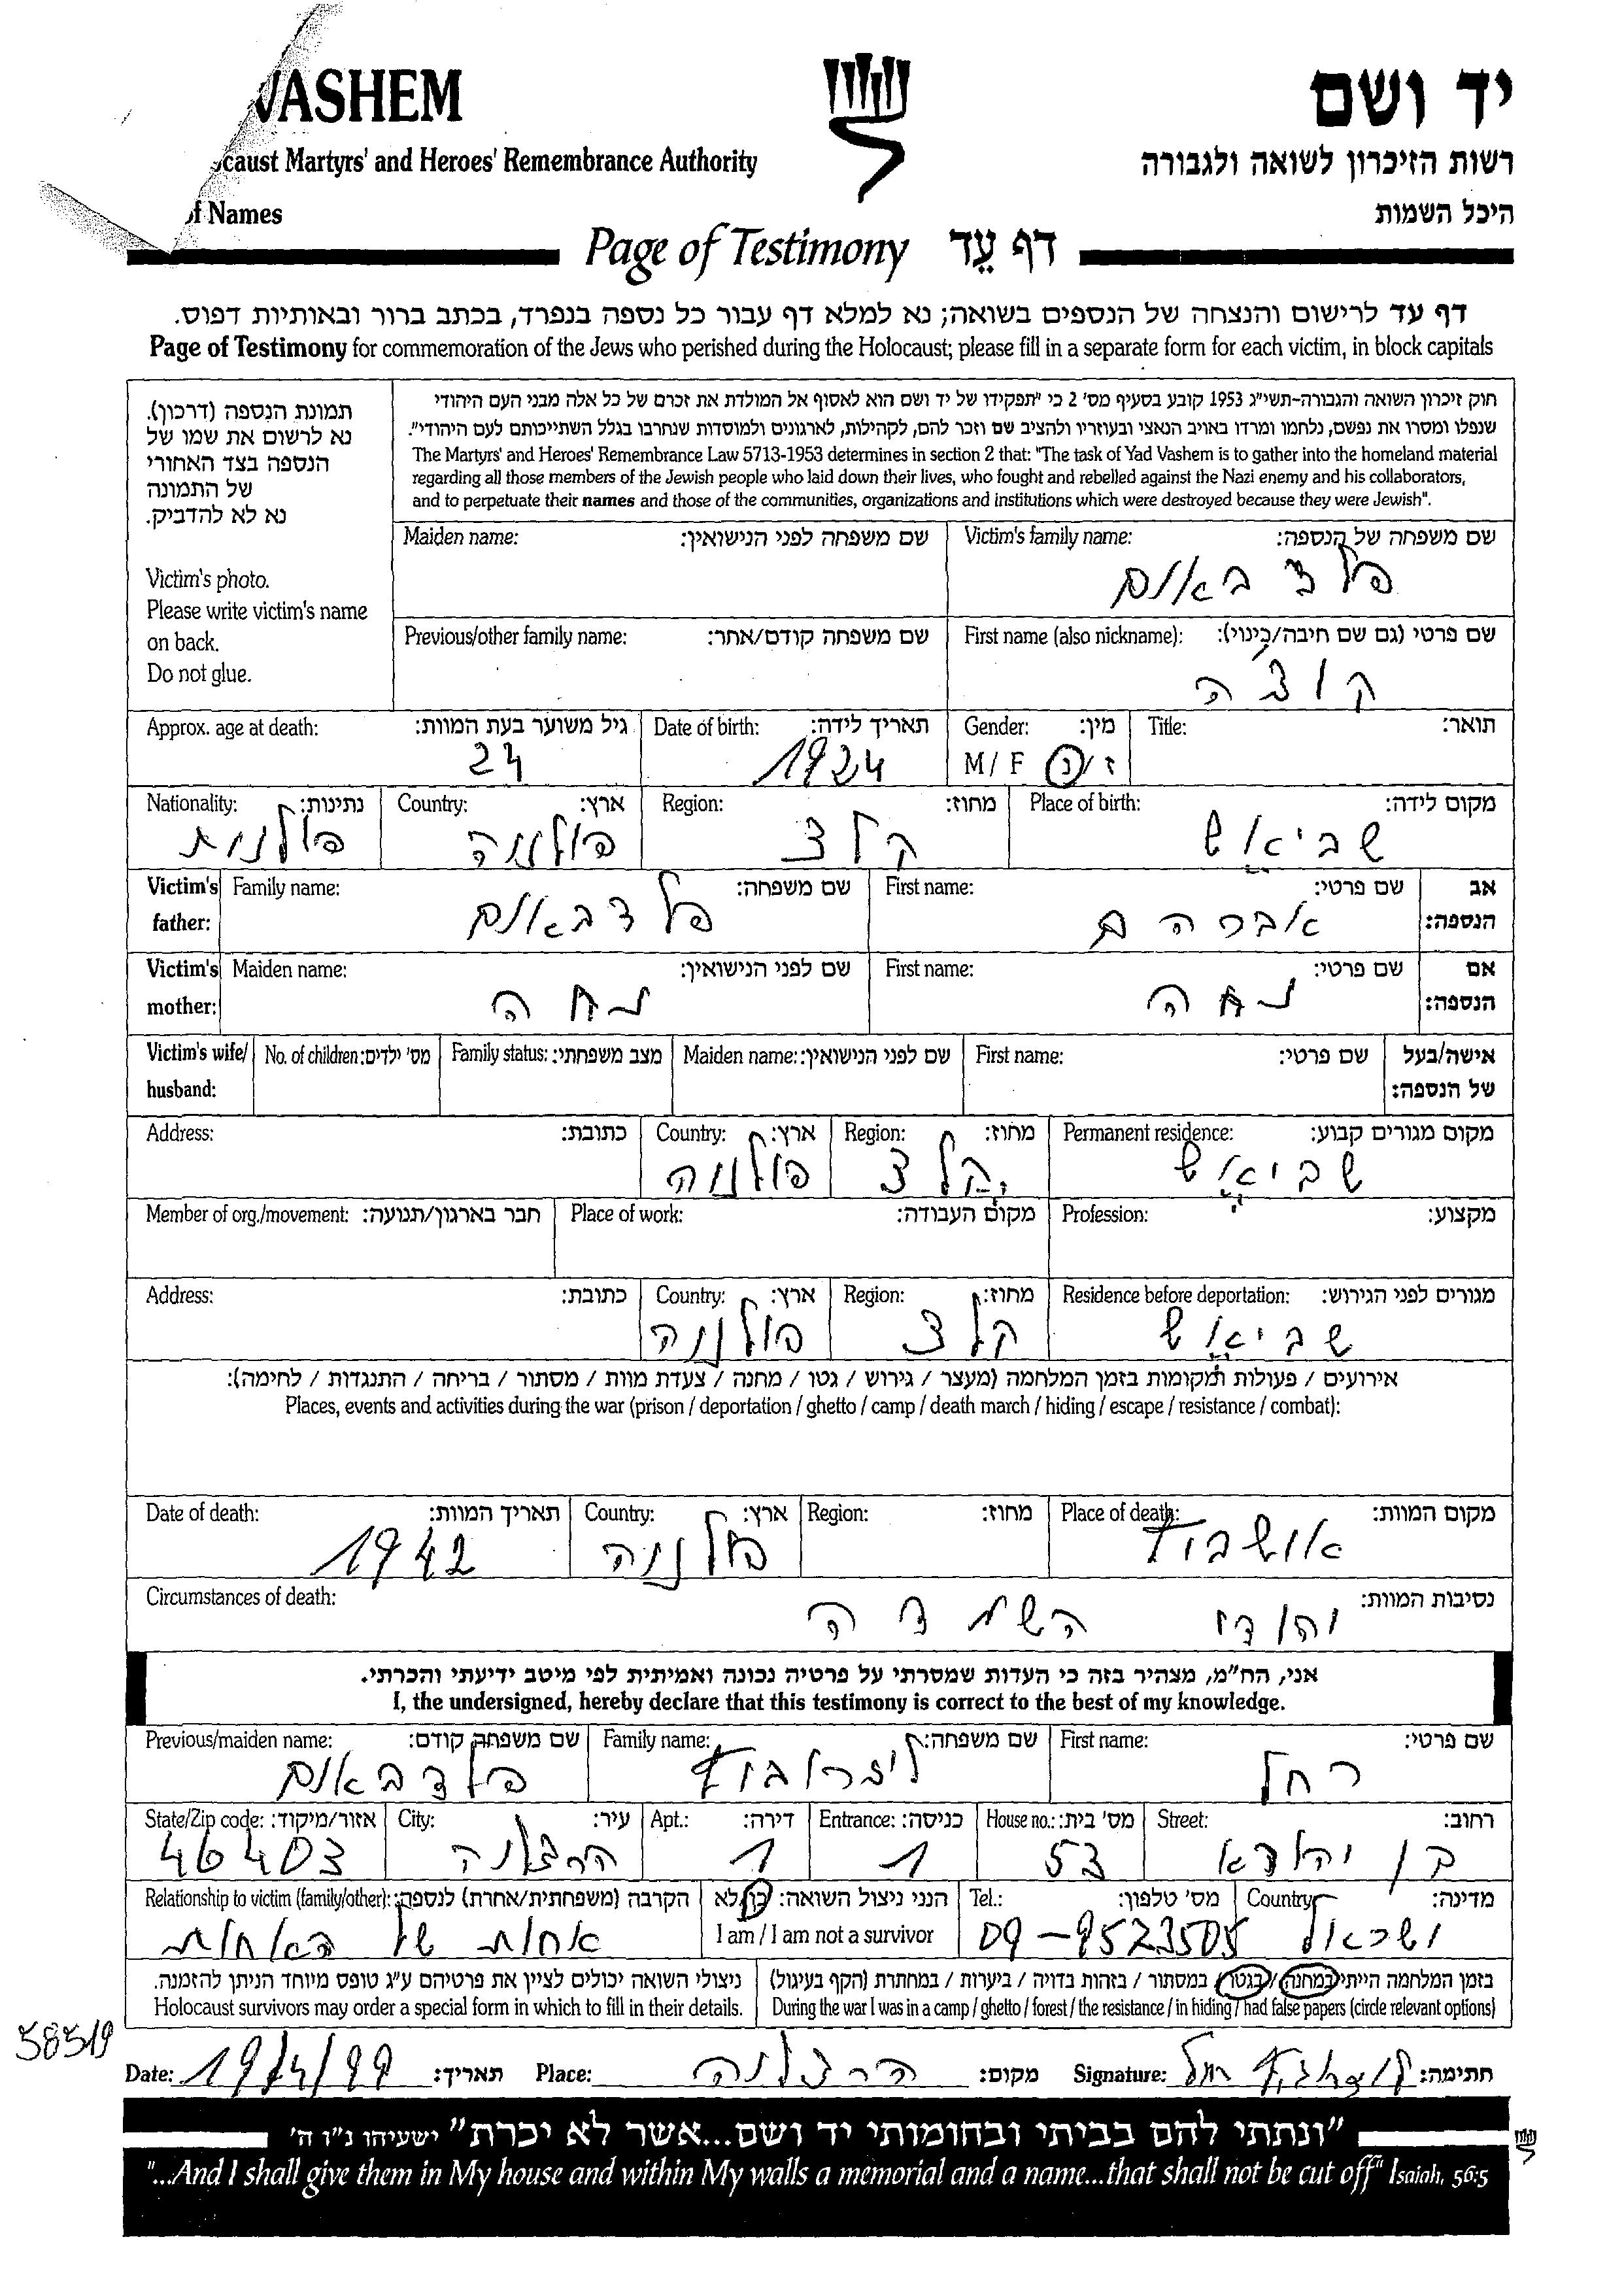 VASHEM
יד ושם
caust Martyrs' and Heroes' Remembrance Authority
רשות הזיכרון לשואה ולגבורה
of Names
היכל השמות
Page of Testimony דף עֵד
דף עד לרישום והנצחה של הנספים בשואה; נא למלא דף עבור כל נספה בנפרד, בכתב ברור ובאותיות דפוס.
Page of Testimony for commemoration of the Jews who perished during the Holocaust; please fill in a separate form for each victim, in block capitals
תמונת הנספה (דרכון).
נא לרשום את שמו של
הנספה בצד האחורי
של התמונה
נא לא להדביק.
Victim's photo.
Please write victim's name
on back.
Do not glue.
חוק זיכרון השואה והגבורה-תשי"ג 1953 קובע בסעיף מס' 2 כי "תפקידו של יד ושם הוא לאסוף אל המולדת את זכרם של כל אלה מבני העם היהודי
שנפלו ומסרו את נפשם, נלחמו ומרדו באויב הנאצי ובעוזריו ולהציב שם וזכר להם, לקהילות, לארגונים ולמוסדות שנחרבו בגלל השתייכותם לעם היהודי".
The Martyrs' and Heroes' Remembrance Law 5713-1953 determines in section 2 that: "The task of Yad Vashem is to gather into the homeland material
regarding all those members of the Jewish people who laid down their lives, who fought and rebelled against the Nazi enemy and his collaborators,
and to perpetuate their names and those of the communities, organizations and institutions which were destroyed because they were Jewish".
Victim's family name: שם משפחה של הנספה:
Maiden name: שם משפחה לפני הנישואין:
פלדבאום
First name (also nickname): שם פרטי (גם שם חיבה/כינוי):
Previous/other family name: שם משפחה קודם/אחר:
Title: תואר:
Gender: מין:
M / F ז/נ
Date of birth: תאריך לידה:
1924
Approx. age at death: גיל משוער בעת המוות:
24
Place of birth: מקום לידה:
Region: מחוז:
קלצ
Country: ארץ:
פולניה
Nationality: נתינות:
פולנית
אב הנספה:
Victim's father:
First name: שם פרטי:
אברהם
Family name: שם משפחה:
פלדבאום
אם הנספה:
Victim's mother:
First name: שם פרטי:
נחה
Maiden name: שם לפני הנישואין:
נחה
אישה/בעל של הנספה:
Victim's wife/ husband:
First name: שם פרטי:
Maiden name: שם לפני הנישואין:
Family status: מצב משפחתי:
No. of children: מס' ילדים:
Permanent residence: מקום מגורים קבוע:
Region: מחוז:
קלצ
Country: ארץ:
פולניה
Address: כתובת:
Profession: מקצוע:
Place of work: מקום העבודה:
Member of org./movement: חבר בארגון/תנועה:
Residence before deportation: מגורים לפני הגירוש:
Region: מחוז:
קלצ
Country: ארץ:
פולניה
Address: כתובת:
אירועים / פעולות ומקומות בזמן המלחמה (מעצר / גירוש / גטו / מחנה / צעדת מוות / מסתור / בריחה / התנגדות / לחימה):
Places, events and activities during the war (prison / deportation / ghetto / camp / death march / hiding / escape / resistance / combat):
Place of death: מקום המוות:
אושביץ
Region: מחוז:
Country: ארץ:
פולניה
Date of death: תאריך המוות:
1942
Circumstances of death: נסיבות המוות:
השמדה
אני, הח"מ, מצהיר בזה כי העדות שמסרתי על פרטיה נכונה ואמיתית לפי מיטב ידיעתי והכרתי.
I, the undersigned, hereby declare that this testimony is correct to the best of my knowledge.
First name: שם פרטי:
רחל
Family name: שם משפחה:
ליזרוביץ
Previous/maiden name: שם משפחה קודם:
פלדבאום
Street: רחוב:
בן יהודא
House no.: מס' בית:
53
Entrance: כניסה:
1
Apt.: דירה:
1
City: עיר:
הרצליה
State/Zip code: אזור/מיקוד:
46403
Country: מדינה:
ישראל
Tel.: מס' טלפון:
09-9523505
הנני ניצול השואה: כן/לא
I am / I am not a survivor
Relationship to victim (family/other): הקרבה (משפחתית/אחרת) לנספה:
אחות של האחות
בזמן המלחמה הייתי במחנה / בגטו / במסתור / בזהות בדויה / ביערות / במחתרת (הקף בעיגול)
During the war I was in a camp / ghetto / forest / the resistance / in hiding / had false papers (circle relevant options)
ניצולי השואה יכולים לציין את פרטיהם ע"ג טופס מיוחד הניתן להזמנה.
Holocaust survivors may order a special form in which to fill in their details.
58519
Date: 19/4/99 תאריך: Place: הרצליה מקום: Signature: חתימה:
"ונתתי להם בביתי ובחומותי יד ושם...אשר לא יכרת" ישעיהו נ"ו ה'
"...And I shall give them in My house and within My walls a memorial and a name...that shall not be cut off" Isaiah, 56:5